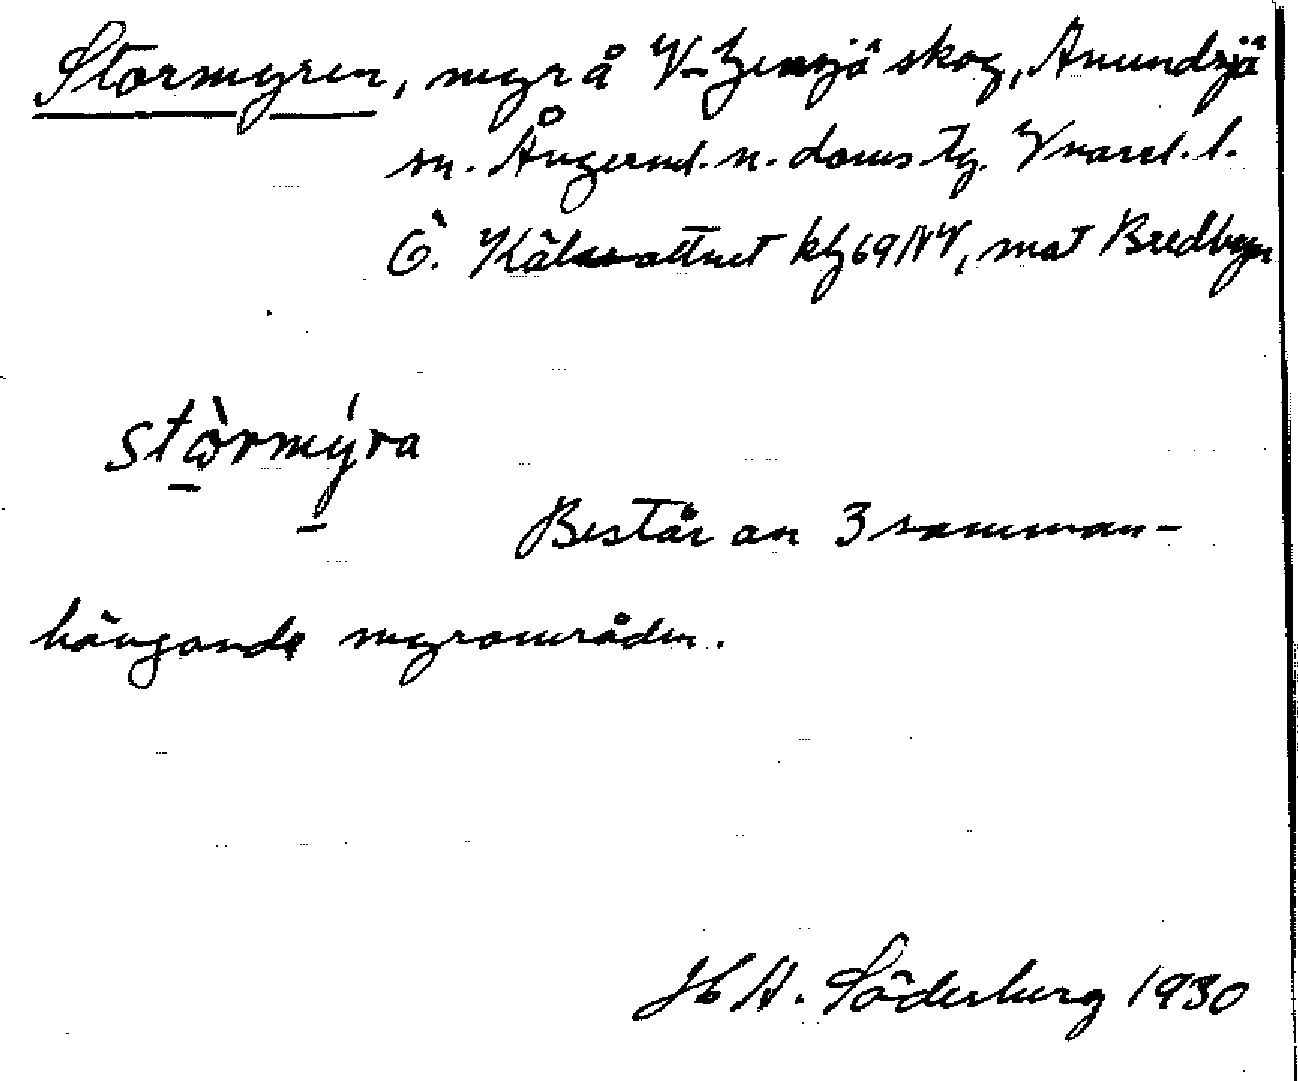 Stormyren, myr å V-Gensjö skog, Anundsjö
sn. Ångerml. n. doms tg. Vnorrl. l.
Ö. Kälsvattnet kbl 69 NV, mat Bredbyn
stòrmýra
Består av 3 samman-
hängande myrområden.
H A. Söderberg 1930